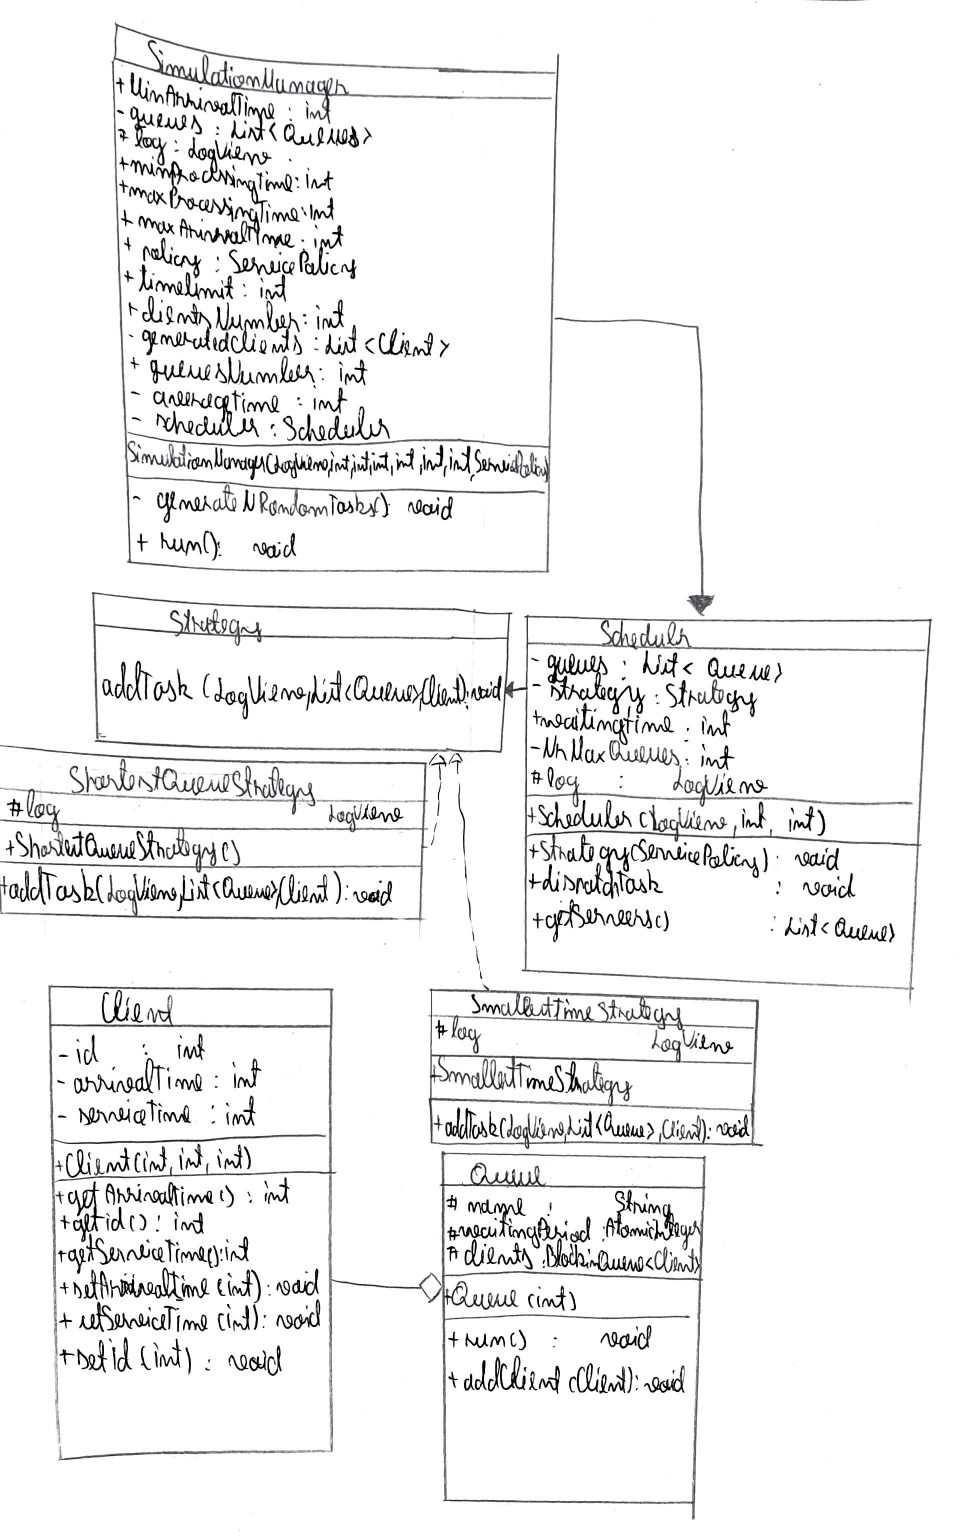 SimulationManager
+ MinArrivalTime : int
- queues : List<Queues>
# log : LogView
+ minProcessingTime: int
+ maxProcessingTime: int
+ maxArrivalTime : int
+ policy : ServicePolicy
+ timelimit : int
+ clientsNumber: int
- generatedClients : List<Client>
+ queuesNumber: int
- averageTime : int
- scheduler : Scheduler
SimulationManager(LogView,int,int,int,int,int,int,ServicePolicy)
- generateNRandomTasks(): void
+ run(): void
Strategy
addTask (LogView,List<Queue>,Client): void
Scheduler
- queues : List< Queue>
- strategy : Strategy
+ waitingtime : int
- NrMaxQueues : int
# log : LogView
+ Scheduler (LogView, int, int)
+ Strategy(ServicePolicy) : void
+ dispatchTask : void
+ getServers() : List<Queue>
ShortestQueueStrategy
# log LogView
+ShortestQueueStrategy()
+addTask(LogView,List<Queue>,Client): void
SmallestTimeStrategy
# log LogView
+SmallestTimeStrategy
+ addTask(LogView,List<Queue>,Client): void
Client
- id : int
- arrivalTime : int
- serviceTime : int
+Client(int, int, int)
+ get ArrivalTime() : int
+ getid() : int
+getServiceTime():int
+setArrivalTime (int): void
+ setServiceTime (int): void
+ setId (int) : void
Queue
# name : String
#waitingPeriod :AtomicInteger
# clients :BlockinQueue<Client>
+Queue (int)
+ run() : void
+ addClient (Client): void